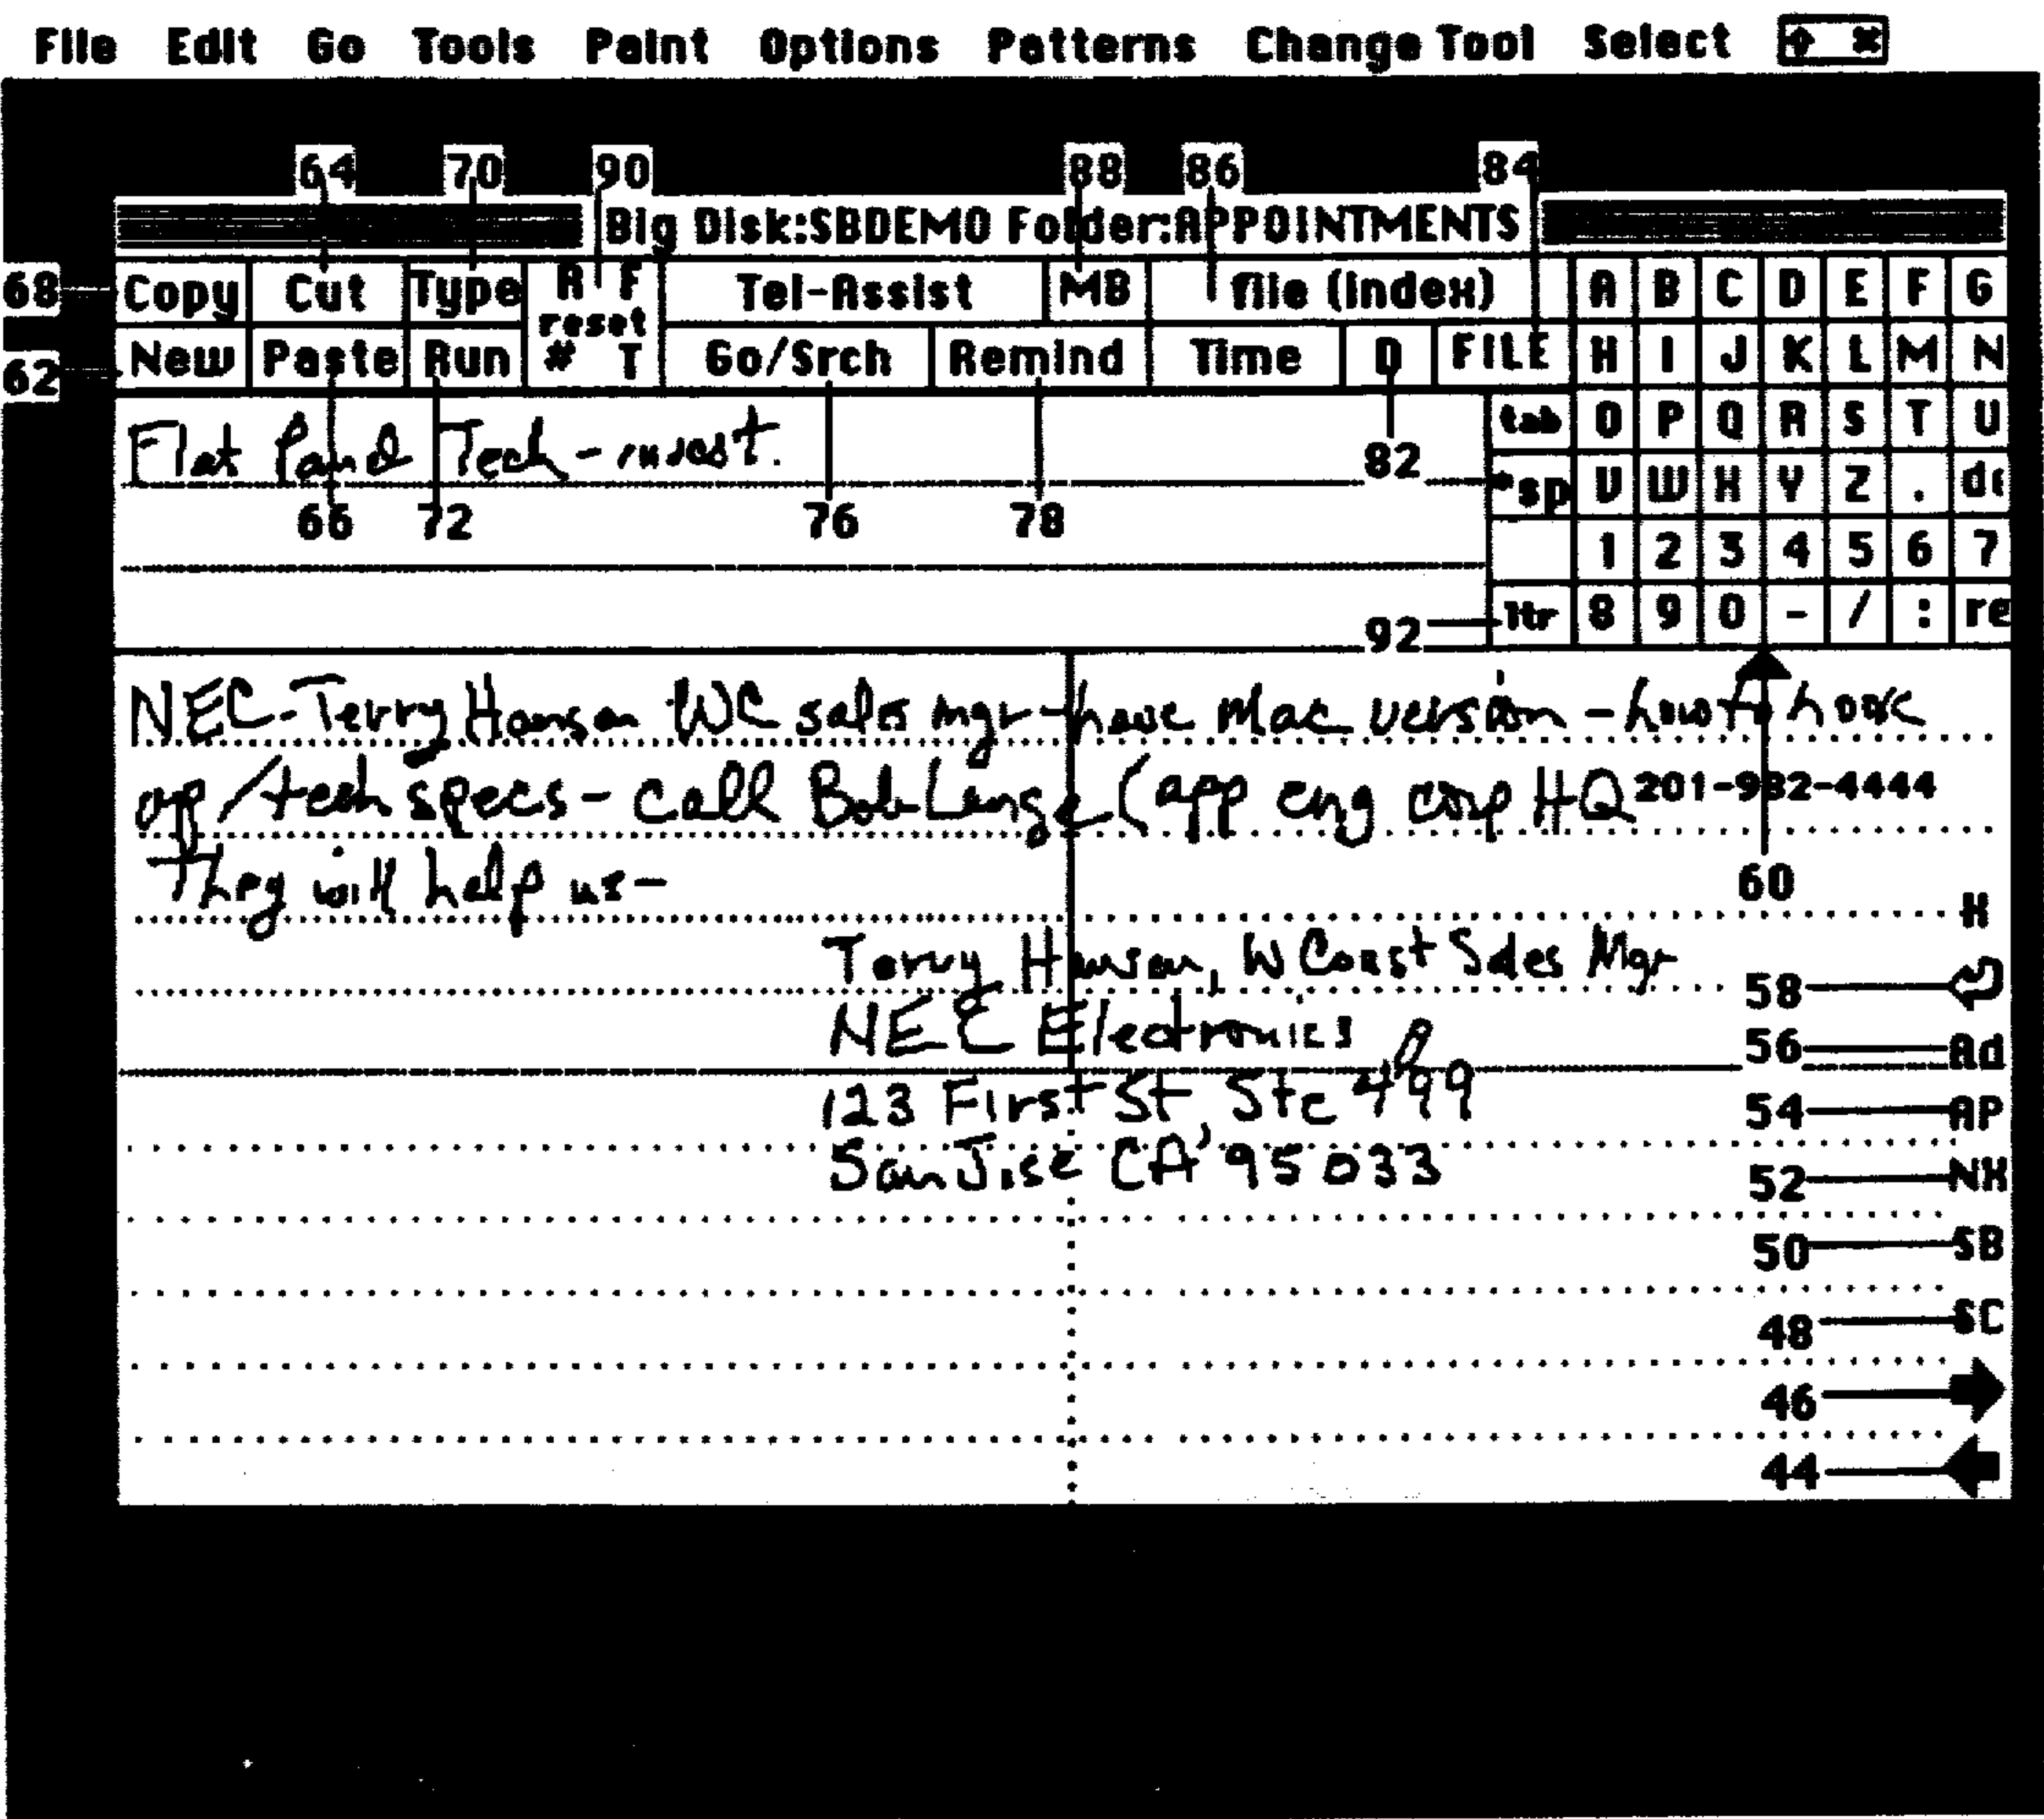 File Edit Go Tools Paint Options Patterns Change Tool Select
64 70 90 88 86 84
Big Disk:SBDEMO Folder:APPOINTMENTS
68 Copy Cut Type R F Tel-Assist MB file (index) A B C D E F G
reset
62 New Paste Run # T Go/Srch Remind Time D FILE H I J K L M N
tab O P Q R S T U
Flat Panel Tech - invest.
82 *sp V W X Y Z . de
66 72 76 78
1 2 3 4 5 6 7
92 ltr 8 9 0 - / : re
NEC-Terry Hanson WC sales mgr-have Mac version - how to hook
up/tech specs - call Bob Lange (app eng corp HQ 201-982-4444
They will help us-
60
X
Terry Hanson, W Coast Sales Mgr
58
NEC Electronics
56 Ad
123 First St, Ste 499
54 AP
San Jose CA 95033
52 NX
50 SB
48 SC
46
44